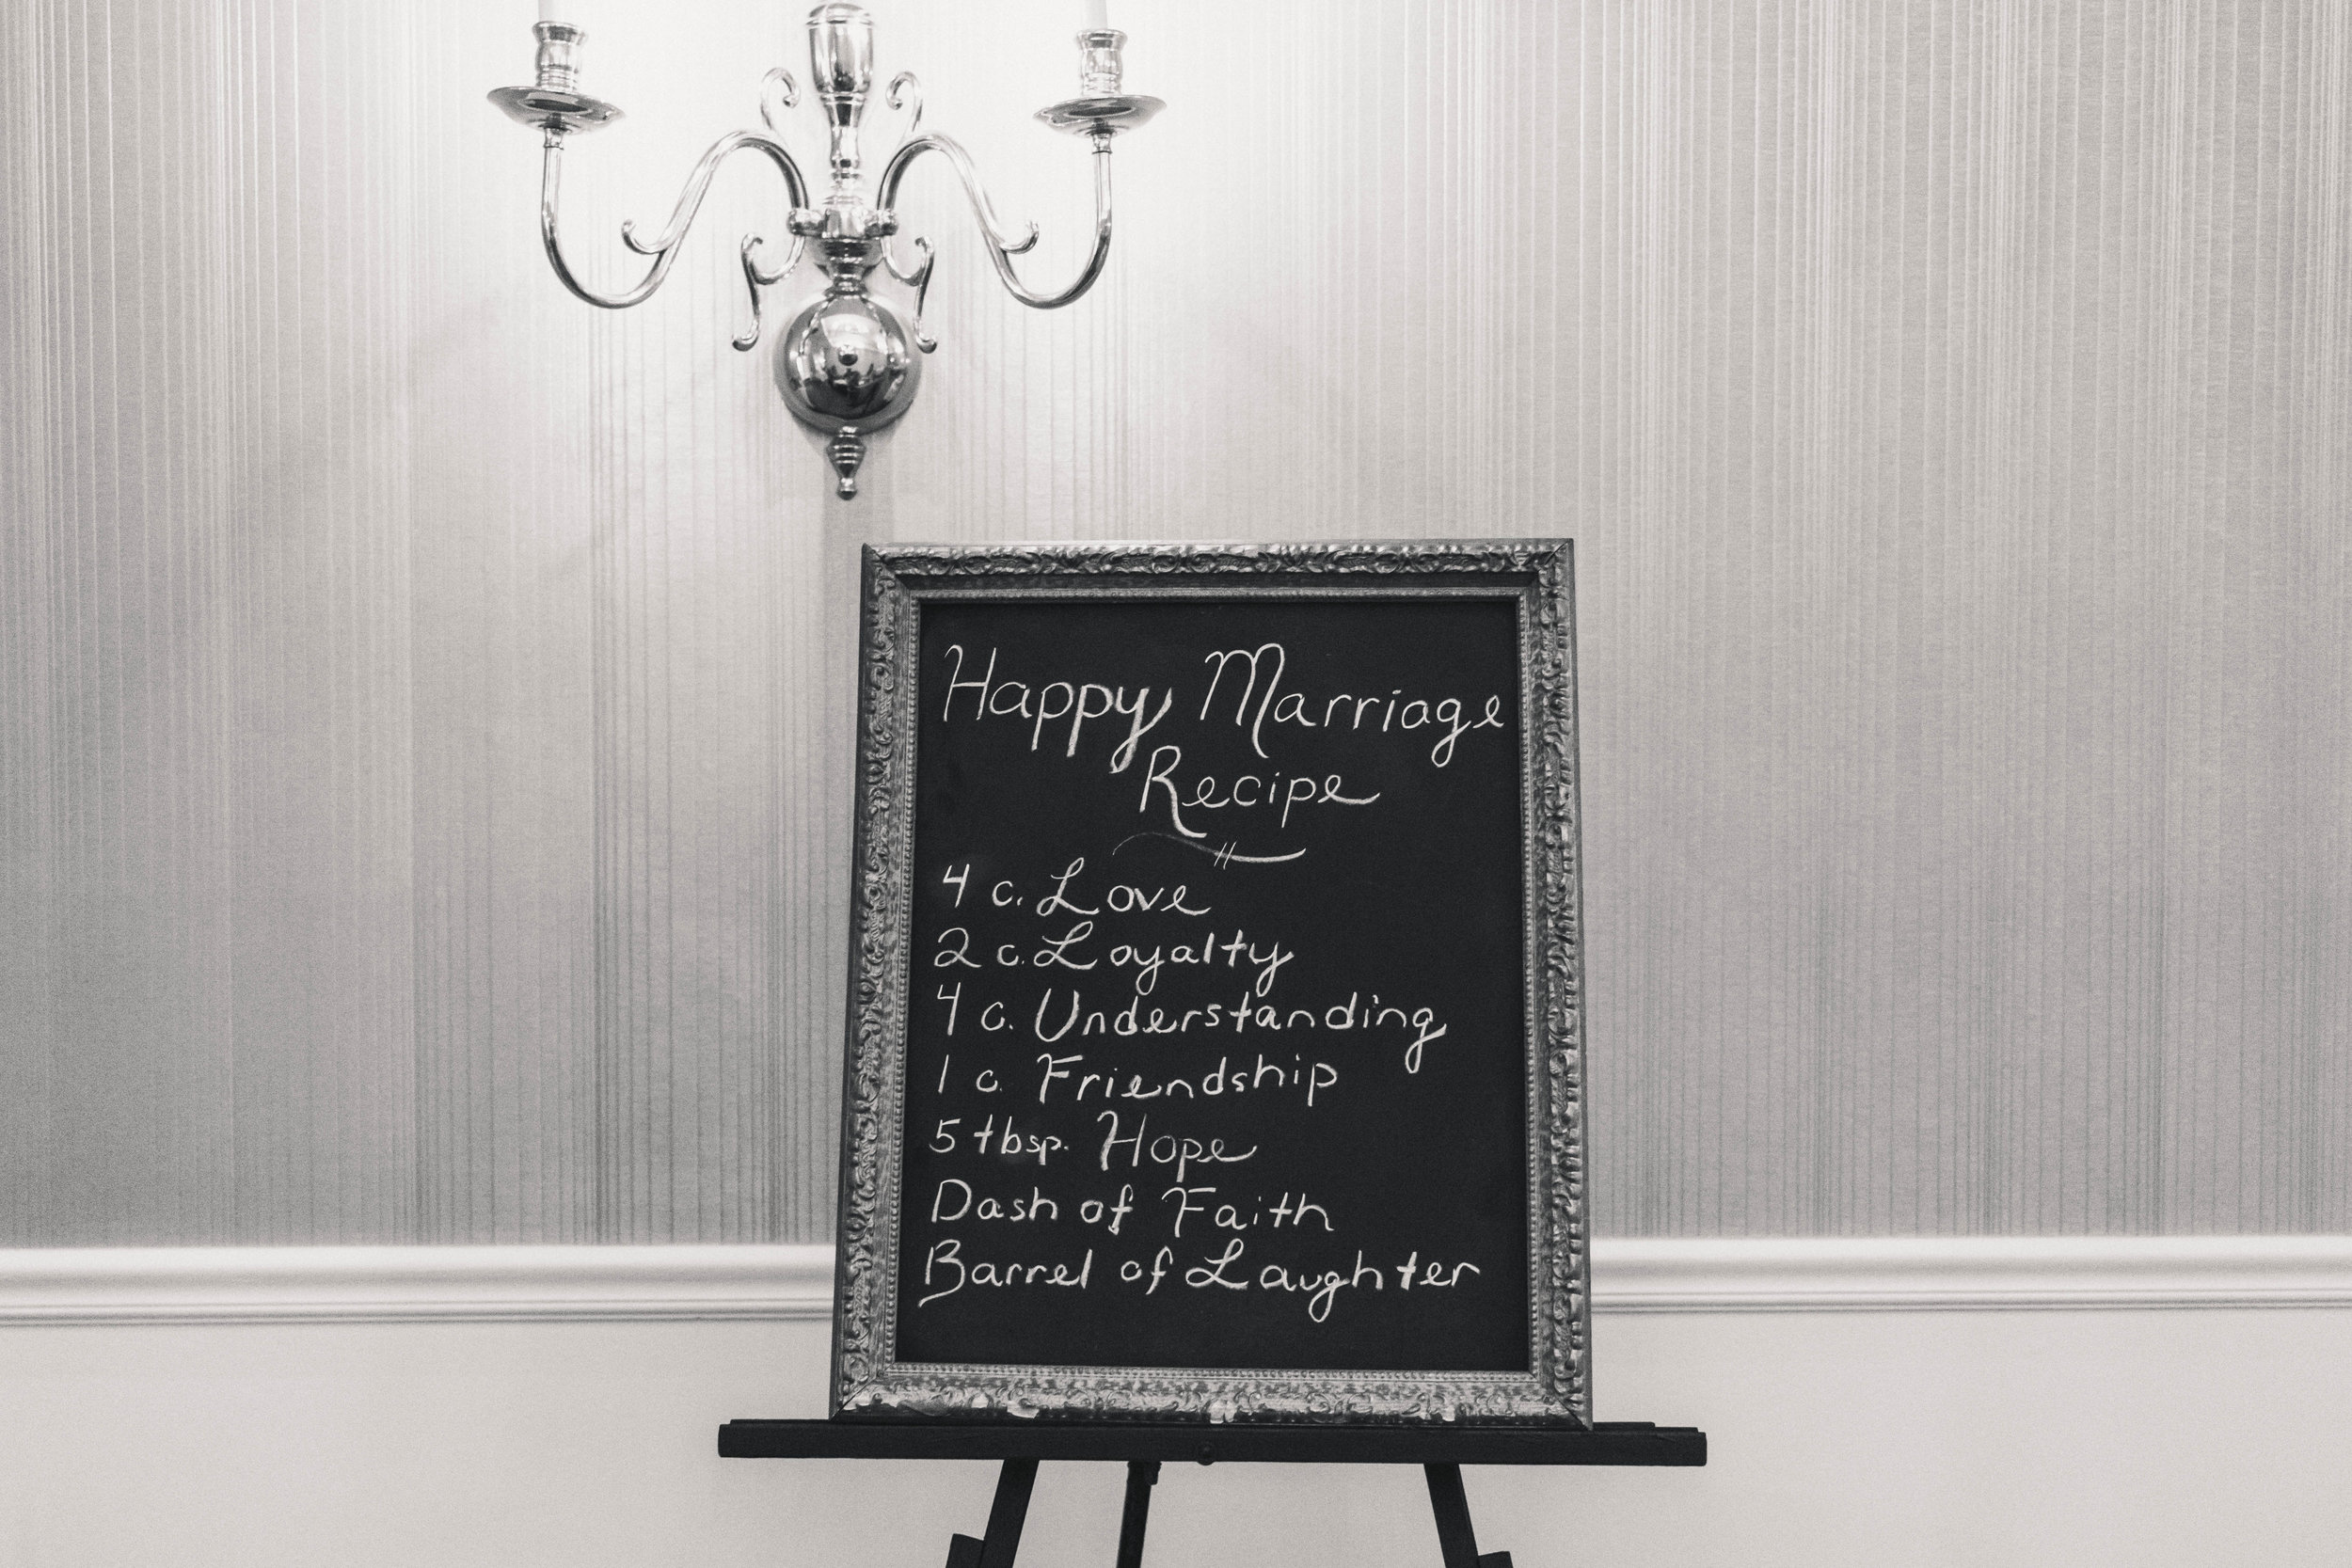 Happy Marriage
Recipe
4 c. Love
2 c. Loyalty
4 c. Understanding
1 c. Friendship
5 tbsp. Hope
Dash of Faith
Barrel of Laughter